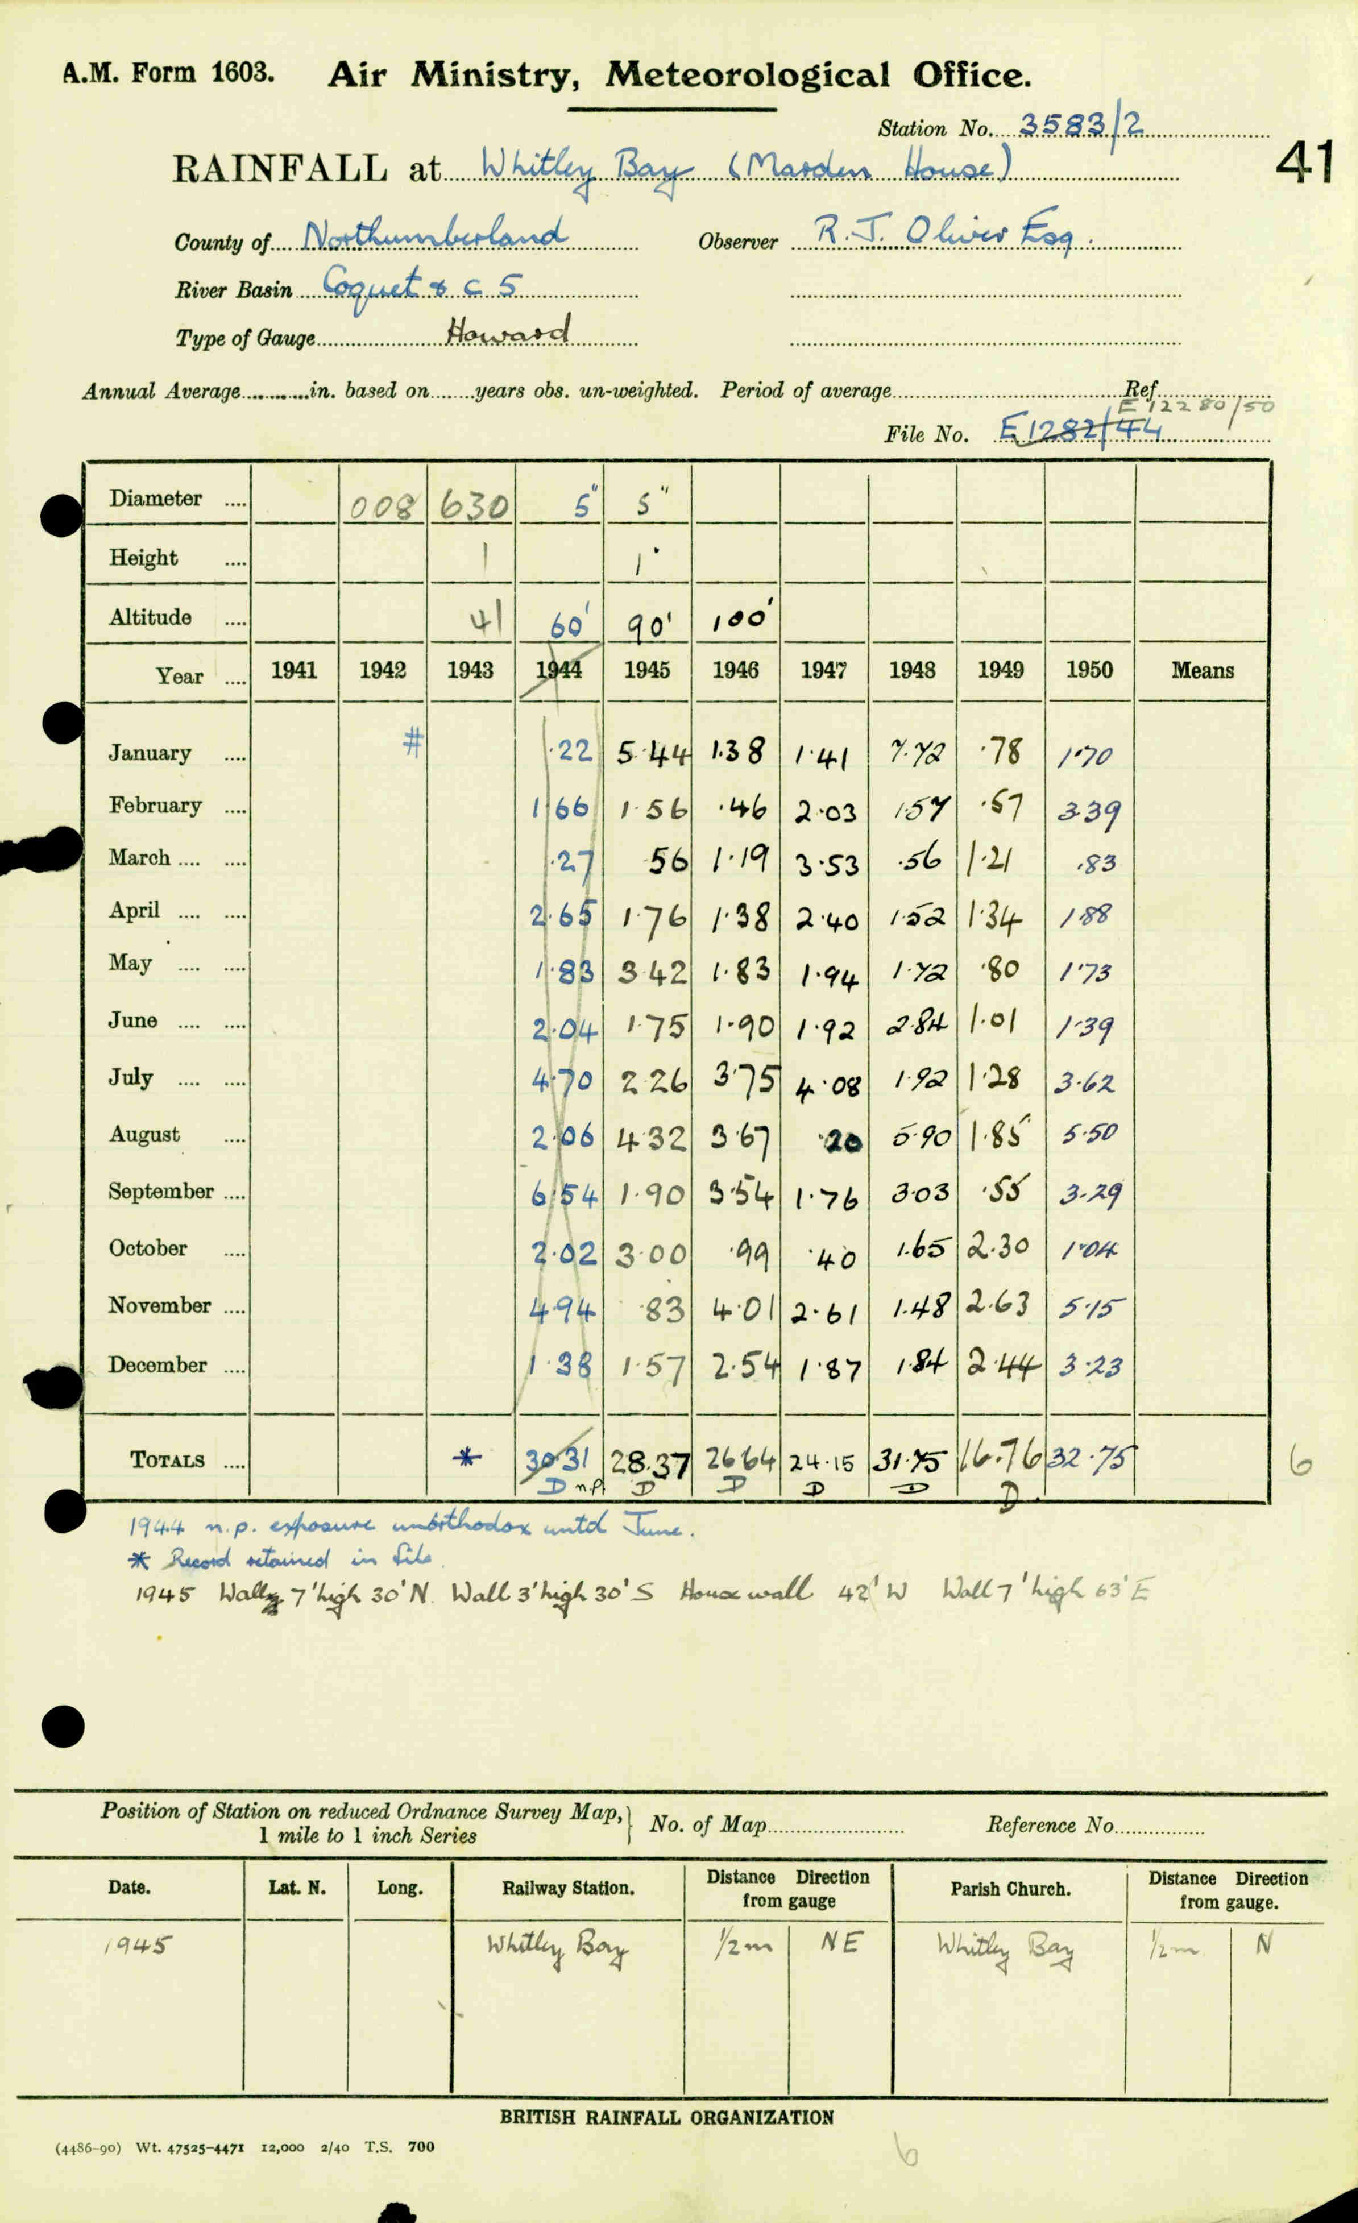 A.M. Form 1603. Air Ministry, Meteorological Office.
Station No. 3583/2
41
RAINFALL at Whitley Bay (Marden House)
County of Northumberland Observer R. J. Oliver Esq.
River Basin Coquet & C 5
Type of Gauge Howard
Annual Average in. based on years obs. un-weighted. Period of average Ref.
E 12280/50
File No. E1282/44
Diameter .... 008 630 5" 5"
Height .... 1 1'
Altitude .... 41 60' 90' 100'
Year .... 1941 1942 1943 1944 1945 1946 1947 1948 1949 1950 Means
January .... # .22 5.44 1.38 1.41 7.72 .78 1.70
February .... 1.66 1.56 .46 2.03 1.57 .57 3.39
March .... .... .27 56 1.19 3.53 .56 1.21 .83
April .... .... 2.65 1.76 1.38 2.40 1.52 1.34 1.88
May .... .... 1.83 3.42 1.83 1.94 1.72 .80 1.73
June .... .... 2.04 1.75 1.90 1.92 2.84 1.01 1.39
July .... .... 4.70 2.26 3.75 4.08 1.92 1.28 3.62
August .... 2.06 4.32 3.67 .20 5.90 1.85 5.50
September .... 6.54 1.90 3.54 1.76 3.03 .55 3.29
October .... 2.02 3.00 .99 .40 1.65 2.30 1.04
November .... 4.94 .83 4.01 2.61 1.48 2.63 5.15
December .... 1.38 1.57 2.54 1.87 1.84 2.44 3.23
TOTALS .... * 30.31 28.37 26.64 24.15 31.75 16.76 32.75 6
D n.p. D D D D D.
1944 n.p. exposure unorthodox until June.
* Record retained in file.
1945 Wall 7' high 30' N Wall 3' high 30' S House wall 42' W Wall 7' high 63' E
Position of Station on reduced Ordnance Survey Map,
1 mile to 1 inch Series
No. of Map Reference No.
Date. Lat. N. Long. Railway Station. Distance Direction from gauge Parish Church. Distance Direction from gauge.
1945 Whitley Bay 1/2m NE Whitley Bay 1/2m N
BRITISH RAINFALL ORGANIZATION
(4486-90) Wt. 47525-4471 12,000 2/40 T.S. 700
6